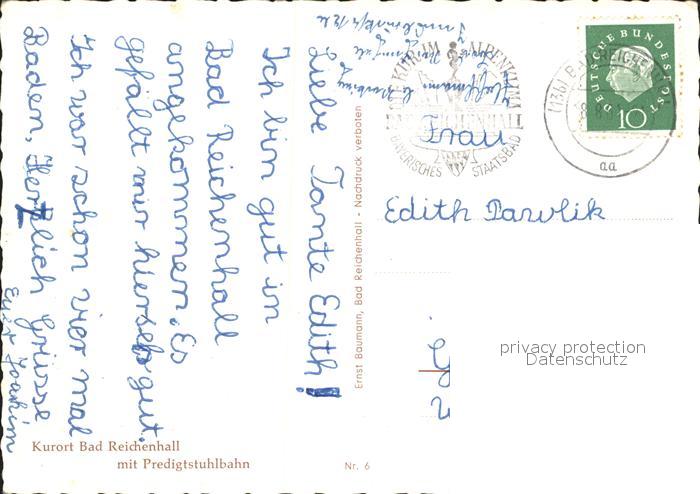 Liebe Tante Edith!
Ich bin gut in
Bad Reichenhall
angekommen. Es
gefällt mir hier sehr gut.
Ich war schon vier mal
Baden, Herzlich Grüsse
Euer Joachim
Frau
Edith Pawlik
DEUTSCHE BUNDESPOST
10
(13b) BAD REICHENHALL
aa
KUR IM ALPENKLIMA
BAD REICHENHALL
BAYERISCHES STAATSBAD
Ernst Baumann, Bad Reichenhall - Nachdruck verboten
privacy protection
Datenschutz
Kurort Bad Reichenhall
mit Predigtstuhlbahn
Nr. 6